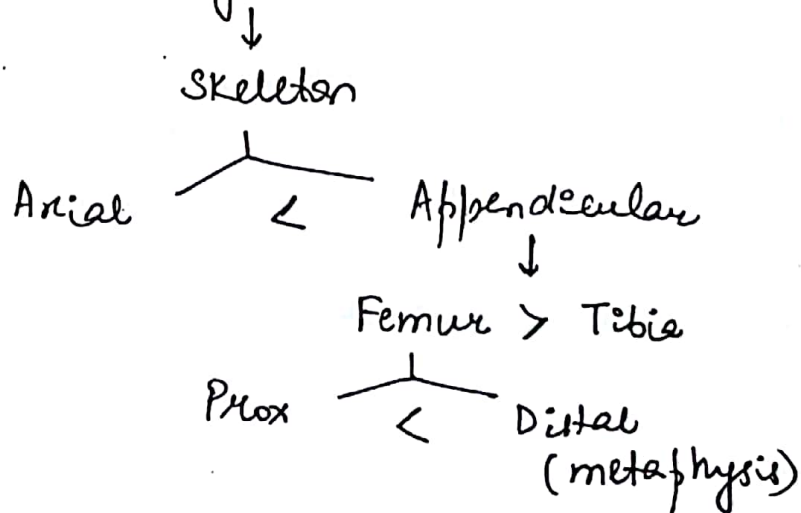 ↓
Skeleton
Axial < Appendicular
↓
Femur > Tibia
Prox < Distal
(metaphysis)